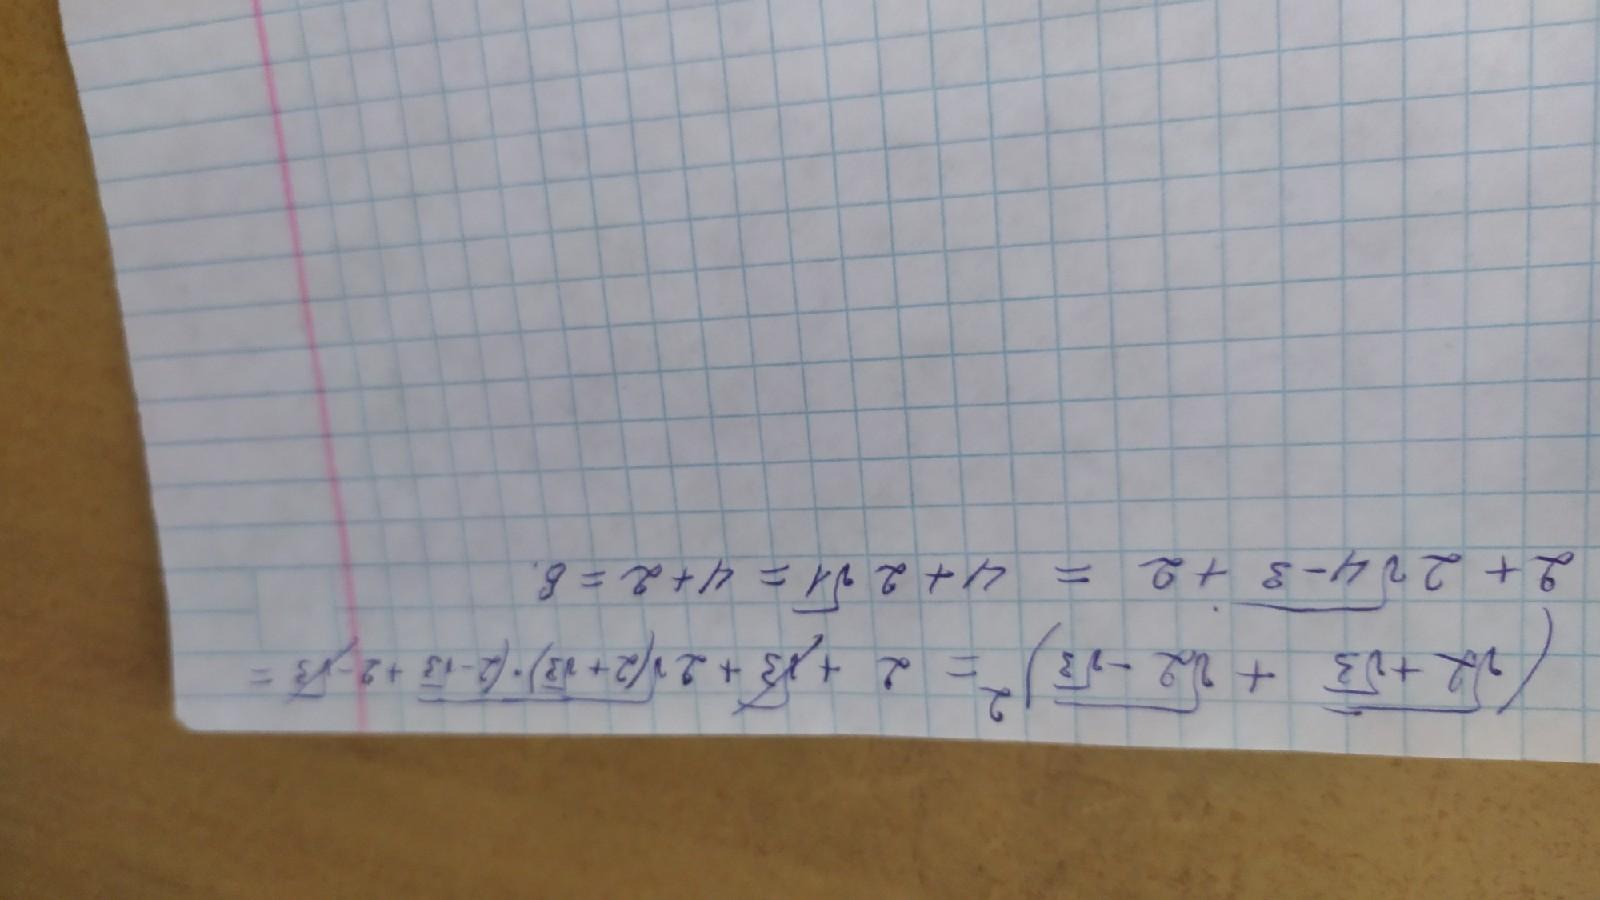 (√(2+√3) + √(2-√3))² = 2 + √3 + 2√((2+√3)·(2-√3) + 2 - √3 =
2 + 2√(4-3) + 2 = 4 + 2√1 = 4 + 2 = 6.